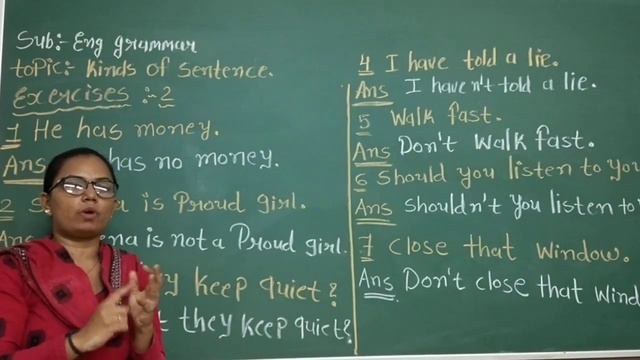 Sub:- Eng grammar
toPic:- Kinds of Sentence.
Exercises :- 2
1 He has money.
Ans has no money.
2 is Proud girl.
Ans is not a Proud girl.
keep quiet?
they keep quiet?
4 I have told a lie.
Ans I haven't told a lie.
5 Walk fast.
Ans Don't walk fast.
6 Should you listen to
Ans Shouldn't you listen to
7 Close that window.
Ans Don't close that